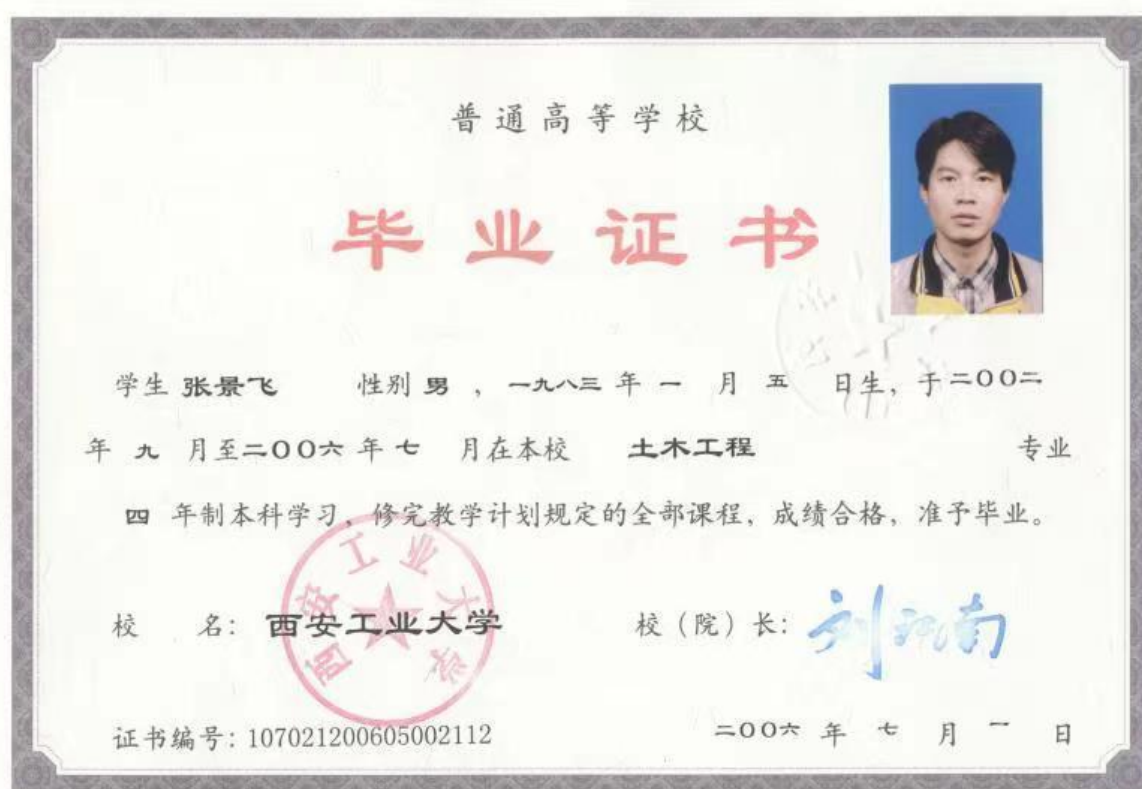 普通高等学校
毕业证书
学生 张景飞 性别 男 ，一九八三 年 一 月 五 日生，于二〇〇二
年 九 月至二〇〇六 年 七 月在本校 土木工程 专业
四 年制本科学习，修完教学计划规定的全部课程，成绩合格，准予毕业。
西安工业大学
校 名：西安工业大学 校（院）长：
证书编号：107021200605002112 二〇〇六 年 七 月 一 日